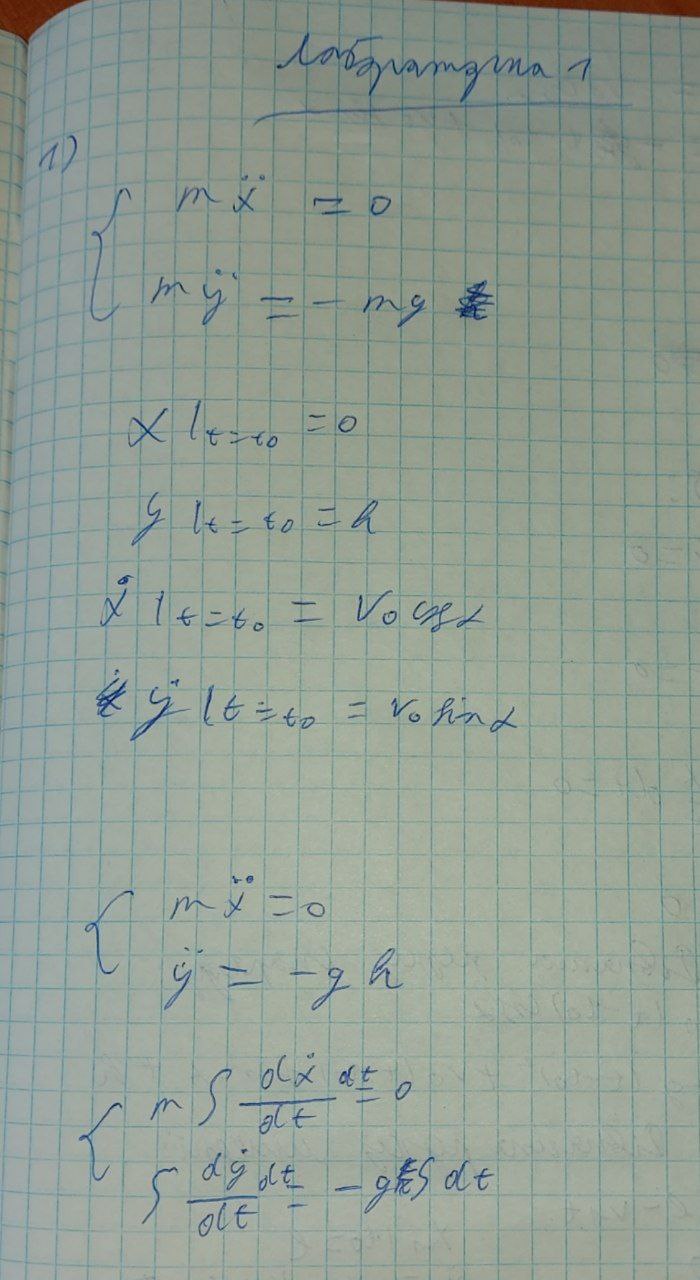 Лабораторна 1
1)
{ mẍ = 0
mÿ = - mg
x |t=t₀ = 0
y |t=t₀ = h
ẋ |t=t₀ = V₀ cosα
ÿ |t=t₀ = v₀ sinα
{ mẍ = 0
ÿ = -g h
{ m ∫ dẋ/dt dt = 0
∫ dẏ/dt dt = - g ∫ dt